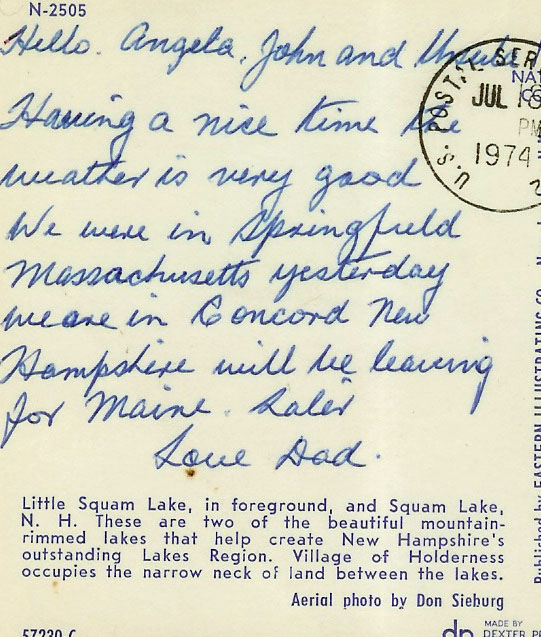 N-2505
Hello. Angela, John and Ursula
Having a nice time the
weather is very good
We were in Springfield
Massachusetts yesterday
we are in Concord New
Hampshire will be leaving
for Maine. Later
Love Dad.
U.S. POSTAL SER
JUL 18
PM
1974
Little Squam Lake, in foreground, and Squam Lake,
N. H. These are two of the beautiful mountain-
rimmed lakes that help create New Hampshire's
outstanding Lakes Region. Village of Holderness
occupies the narrow neck of land between the lakes.
Aerial photo by Don Sieburg
57230-C
dp MADE BY
DEXTER PR
Published by EASTERN ILLUSTRATING CO.